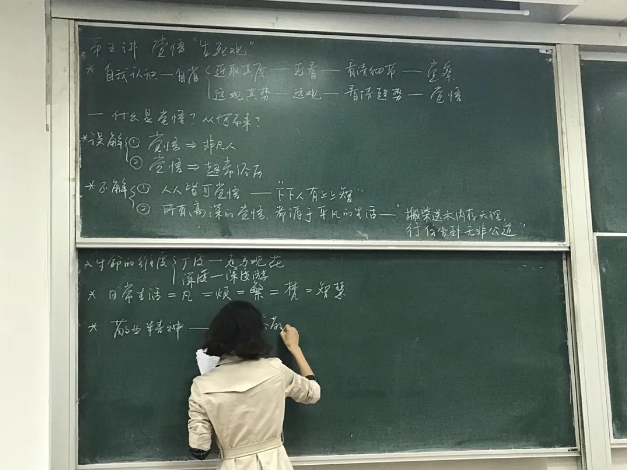 第五讲 觉悟"生死观"
* 自我认识—自省 近取其质—近看—看清细节—觉察
远观其势—远观—看清趋势—觉悟
一 什么是觉悟?从何而来?
*误解 ① 觉悟⇒非凡人
② 觉悟⇒超常
*正解 ① 人人皆可觉悟—"下下人有上上智"
② 所有高深的觉悟,都源于平凡的生活—"搬柴运水
行住坐卧无非
* 生命的维度 广度—走马观花
深度—深度
* 日常生活=凡=烦=繁=梵=智慧
* 敬业精神—